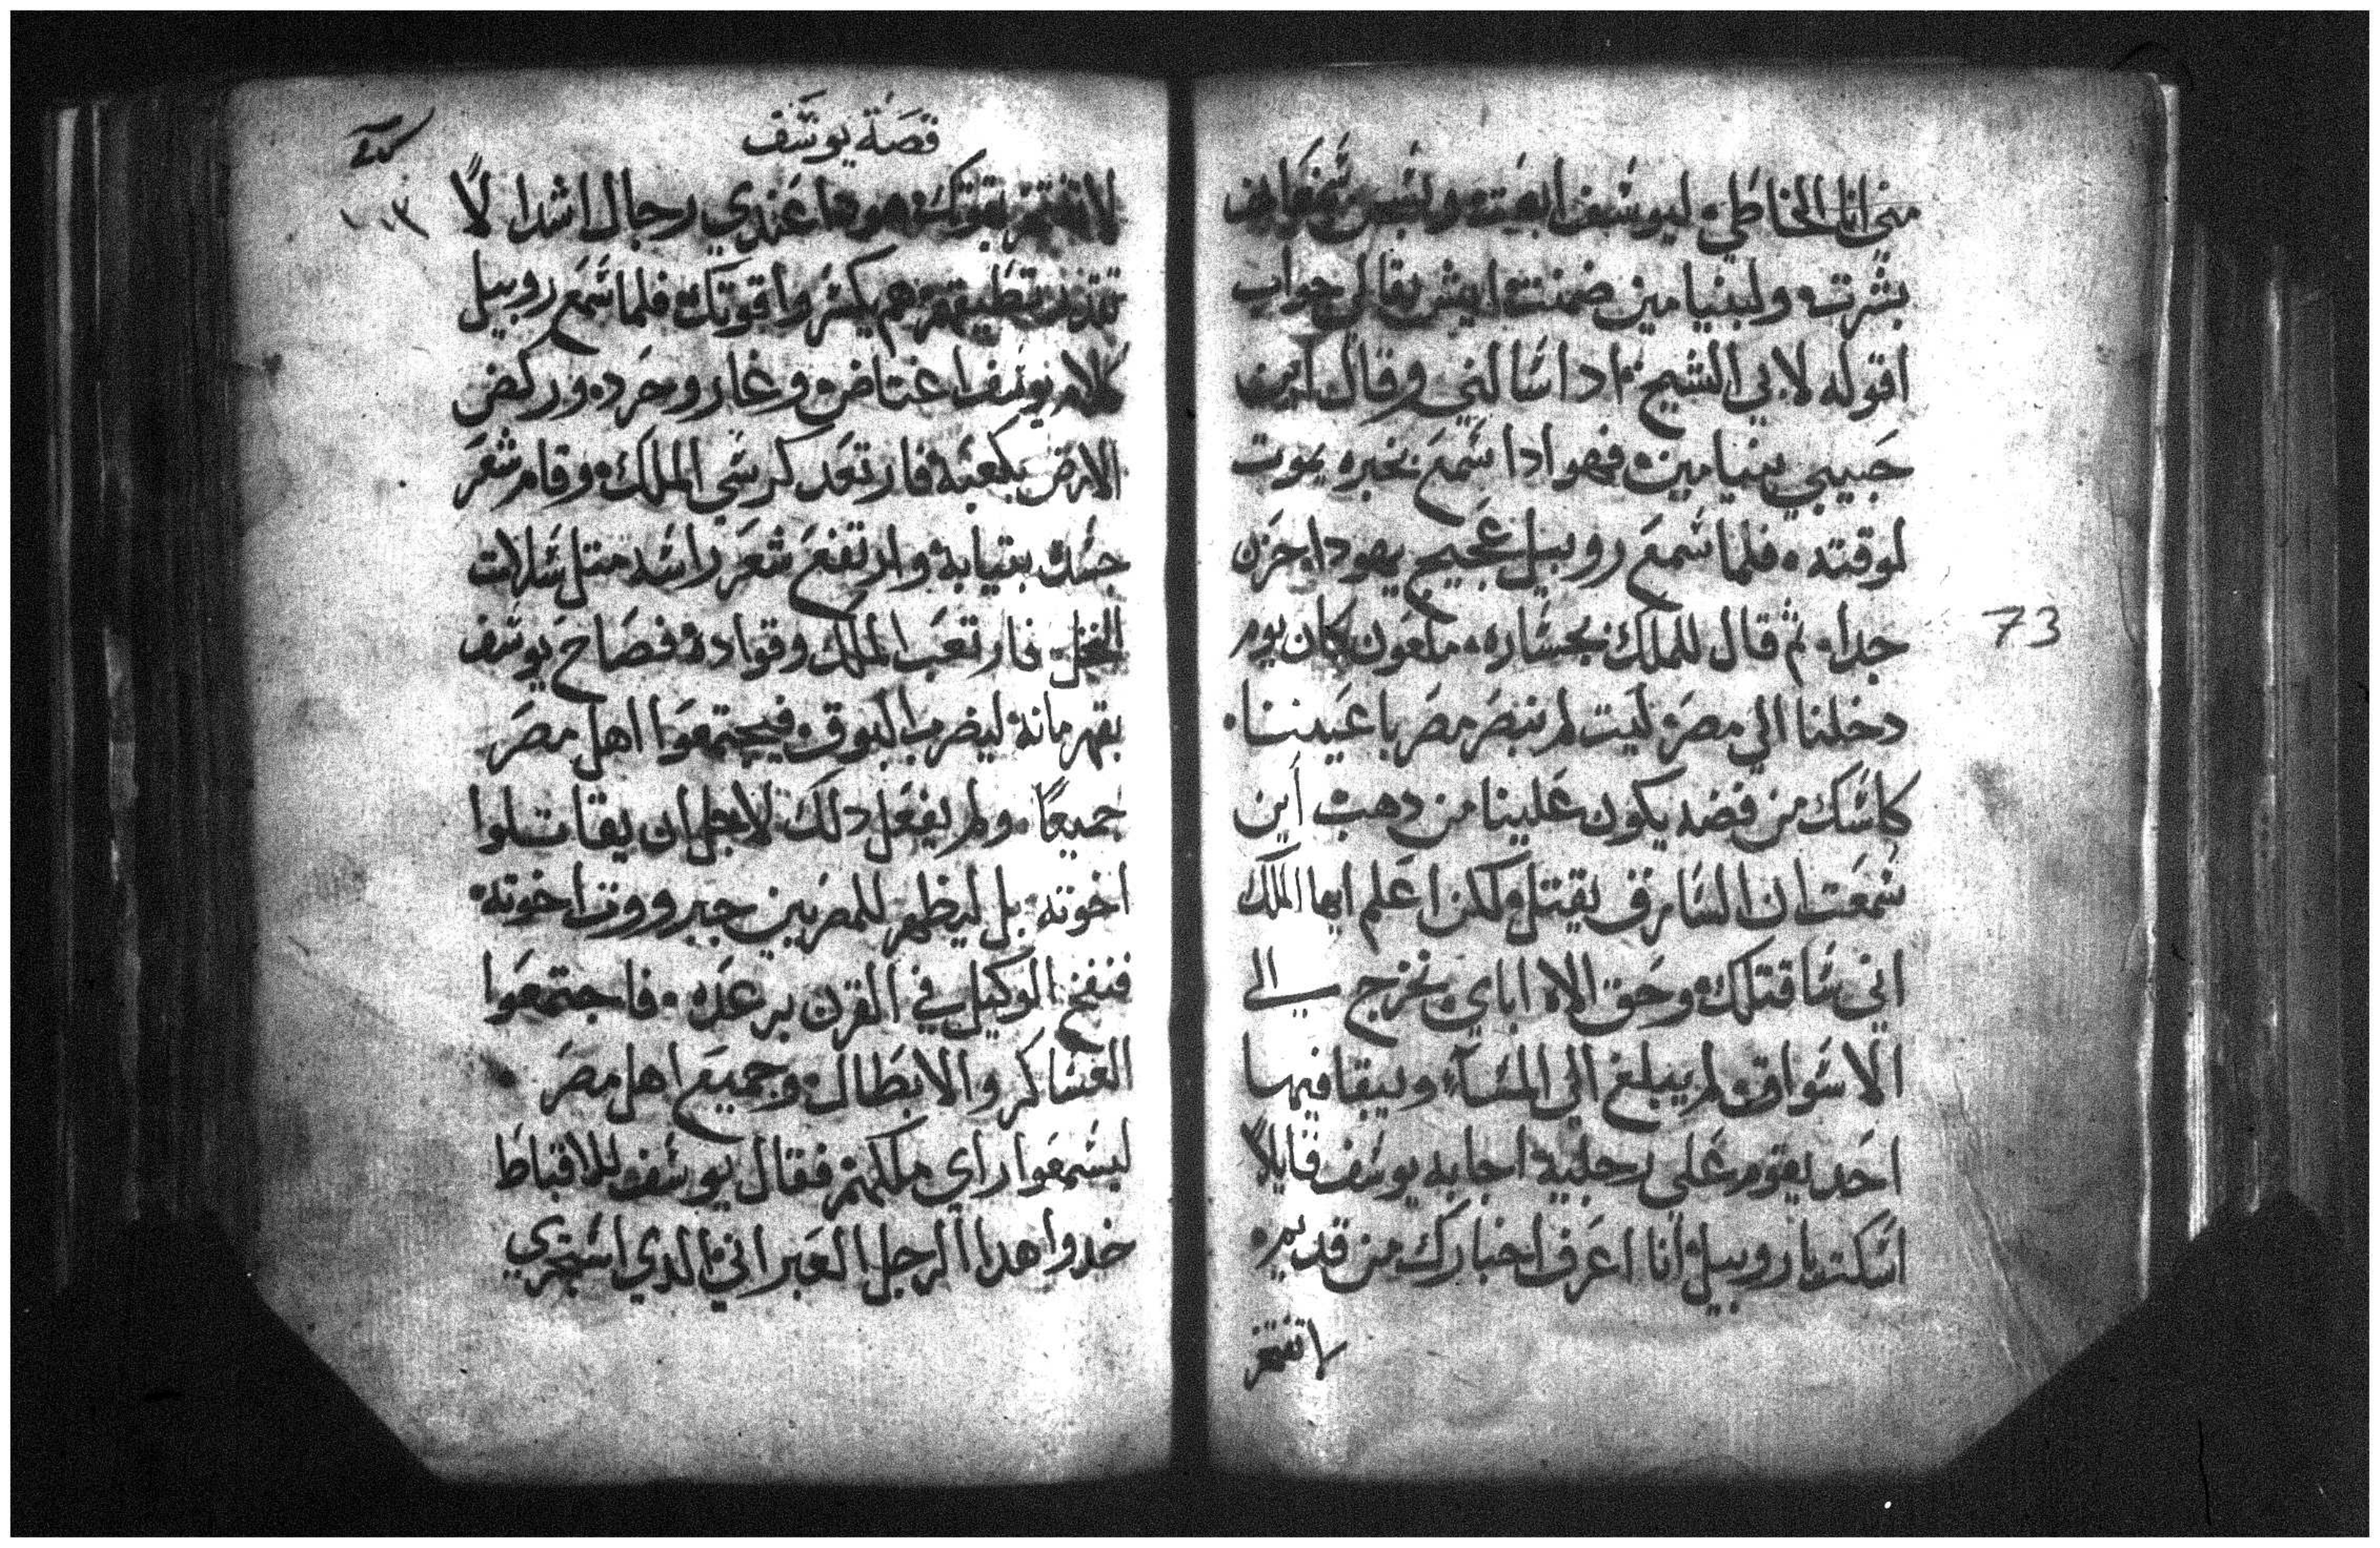 مني انا الخاطي ليوسف ابعت وبتبس
بشرت ولبنيامين ضمنت ايش بقا لي جواب
اقوله لابي الشيخ ادا سالني وقال اين
حبيبي بنيامين فهو ادا سمع بخبره يموت
لوقته فلما سمع روبيل عجيج يهودا حزن
جدا ثم قال للملك بجساره ملعون كان يوم
دخلنا الي مصر ليت لم ننبصر مصر باعيننا
كاسك من فضه يكون علينا من دهب أين
سمعت ان السارق يقتل ولكن اعلم ايها الملك
اني ساقتلك وحق الاه اباي ونخرج الى
الاسواق لم يبلغ الي المسآ ويبقا فيها
احد يقوم علي رجليه اجابه يوسف قايلاً
اسكت يا روبيل أنا اعرف اخبارك من قديم
لا تفتخر
73
قصة يوسف
١٠٣
لا تفتخر بقوتك هوها عندي رجال اشدا لاً
تقدر تطيقهم هم يكسروا قوتك فلما سمع روبيل
كلام يوسف اغتاض وغار وحرد وركض
الارض بكعبه فارتعد كرسي الملك وقام شعر
جسده بتيابه وارتفع شعر راسه متل سلات
النخل فارتعب الملك وقواده فصاح يوسف
بقهرمانه ليضرب البوق فيجتمعوا اهل مصر
جميعًا ولم يفعل دلك لاجل ان يقاتلوا
اخوته بل ليظهر للمصريين جبرووت اخوته
فنفخ الوكيل في القرن برعده فاجتمعوا
العساكر والابطال وجميع اهل مصر
ليسمعوا راي ملكهم فقال يوسف للاقباط
خدوا هدا الرجل العبراني الدي استجري